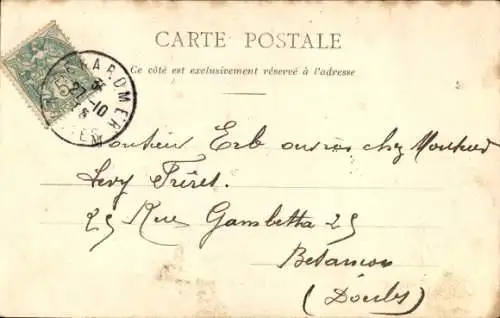 CARTE POSTALE
Ce côté est exclusivement réservé à l'adresse
GÉRARDMER
27-10
VOSGES
5
Monsieur Erb chez Monsieur
Levy Frères.
25 Rue Gambetta 25
Besancon
(Doubs)